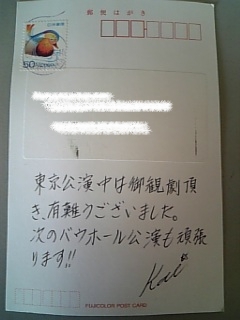 郵便はがき
日本郵便
50 NIPPON
東京公演中は御観劇頂
き、有難うございました。
次のバウホール公演も頑張
ります!!
Kai
FUJICOLOR POST CARD